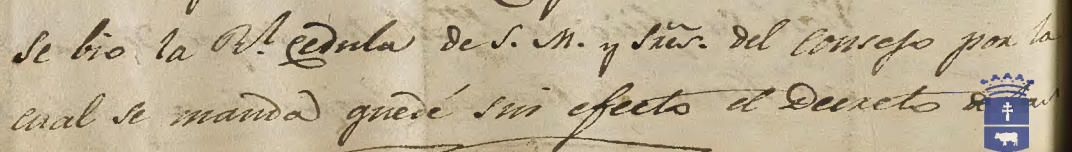 se bio la Rl. Cedula de S. M. y Sres. del Consejo por la
cual se manda quede sin efecto el Decreto de las